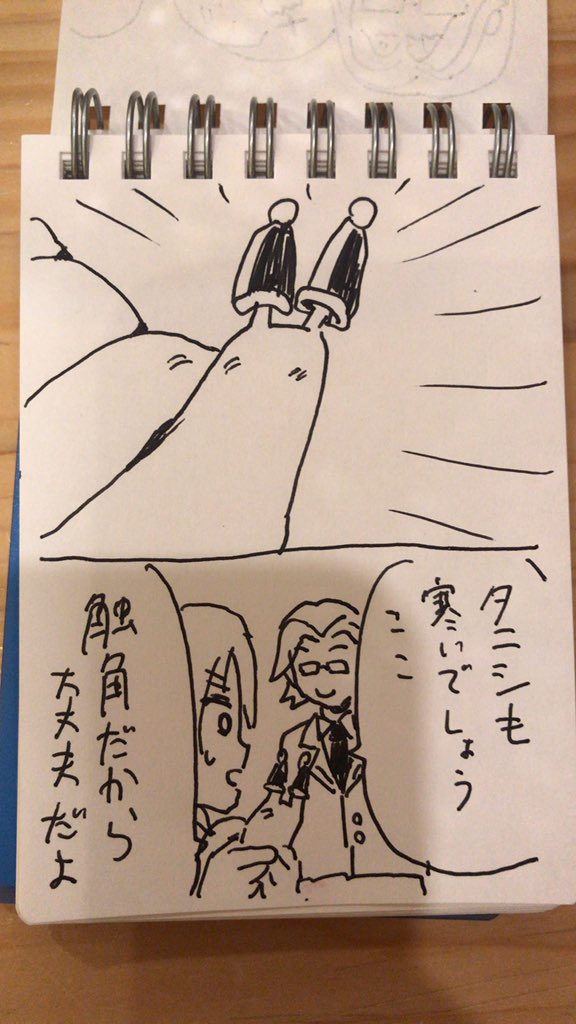 タニシも
寒いでしょう
ここ
触角だから
大丈夫だよ